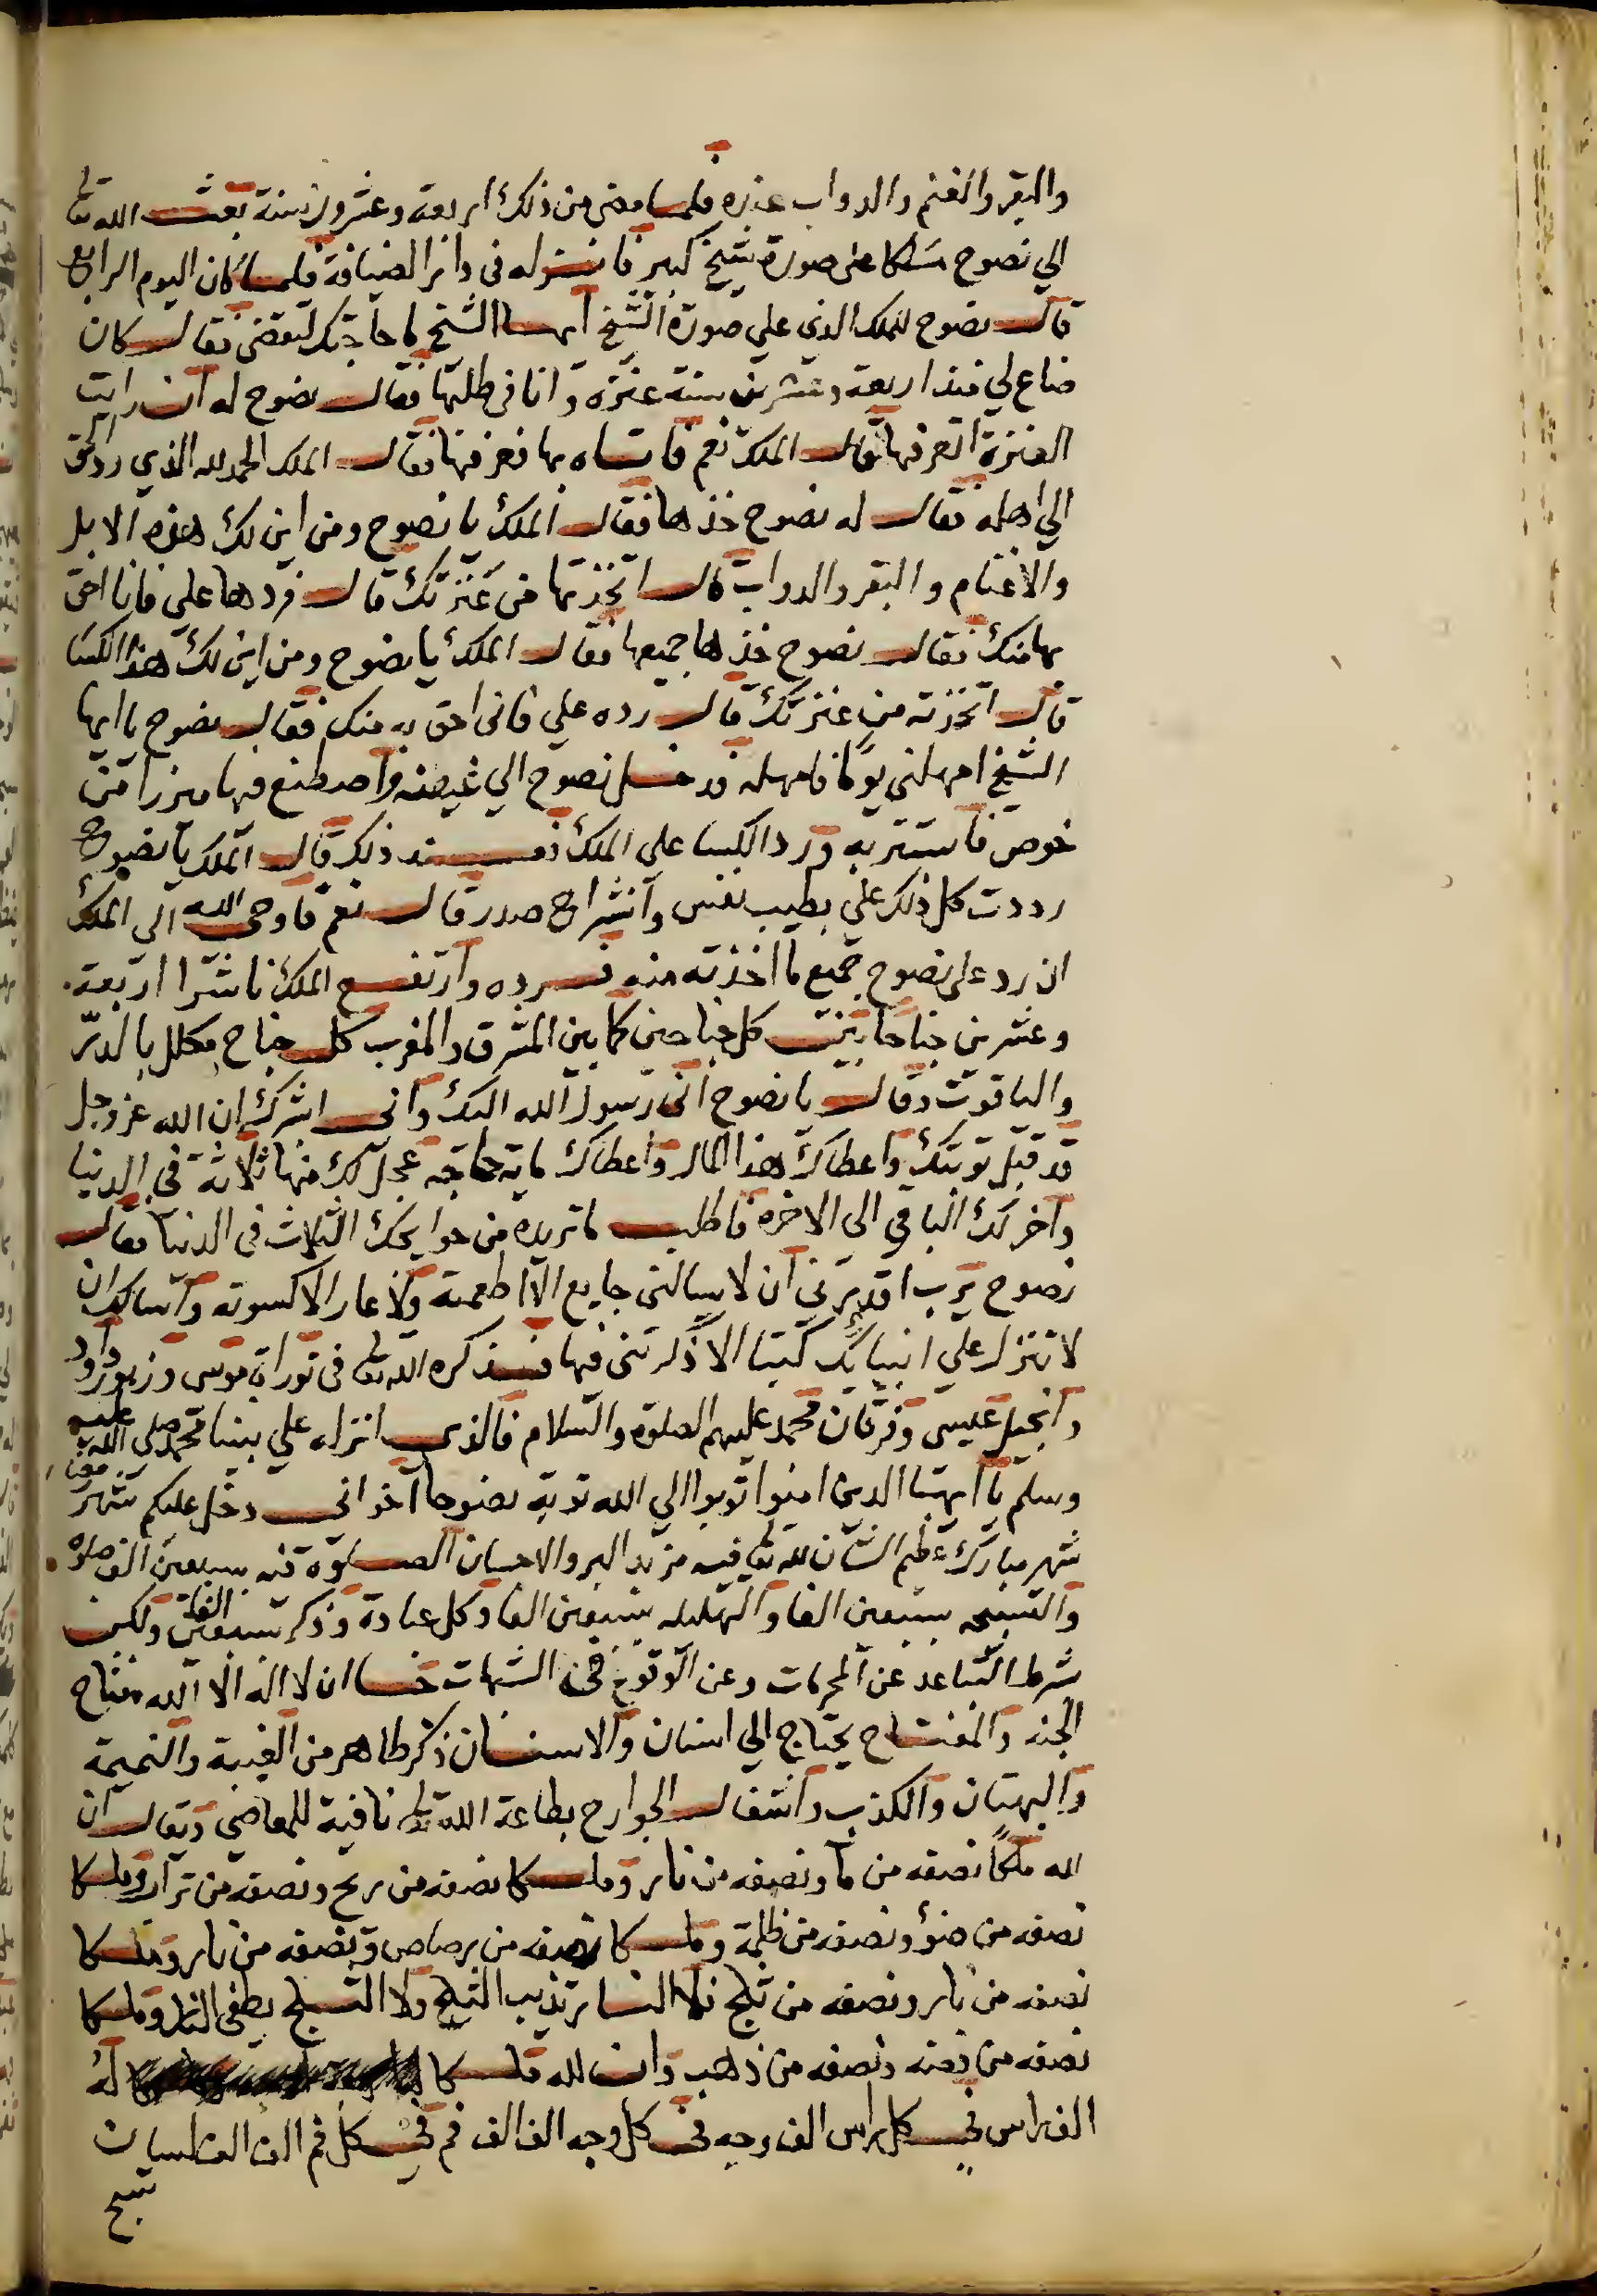 والبقر والغنم والدواب عنزه فلما مضى من ذلك اربعة وعشرون سنة بعث الله تعالى
الي نصوح ملكا على صورة شيخ كبير فانزله في دار الضيافة فلما كان اليوم الرابع
قال نصوح للملك الذي علي صورة الشيخ ايها الشيخ ما حاجتك لتقضى فقال كان
ضاع لي منذ اربعة وعشرين سنة عنزة وانا في طلبها فقال نصوح له ان رايت
العنزة اتعرفها فقال الملك نعم فاتاه بها فعرفها فقال الملك الحمد لله الذي رد الحق
الي اهله فقال له نصوح خذها فقال الملك يا نصوح ومن اين لك هذه الابل
والاغنام والبقر والدواب قال اتخذتها من عنزتك قال فردها علي فانا احق
بها منك فقال نصوح خذها جميعها فقال الملك يا نصوح ومن اين لك هذا الكسا
قال اتخذته من عنزتك قال رده علي فانى احق به منك فقال نصوح يا ايها
الشيخ امهلني يوما فامهله فدخل نصوح الي غيضه فاصطنع فيها ميزرا من
خوص فاستتر به ورد الكسا علي الملك فعند ذلك قال الملك يا نصوح
رددت كل ذلك علي بطيب نفس وانشراح صدر قال نعم فاوحى الله الى الملك
ان رد على نصوح جميع ما اخذته منه فرده وارتفع الملك ناشرا اربعة
وعشرين جناحا بين كل جناحين كما بين المشرق والمغرب كل جناح مكلل بالدر
والياقوت وقال يا نصوح انى رسول الله اليك وانى ابشرك ان الله عز وجل
قد قبل توبتك واعطاك هذا المال واعطاك ماية حاجة عجل لك منها ثلاثة في الدنيا
واخر لك الباقي الى الاخرة فاطلب ما تريده من حوايجك الثلاث في الدنيا فقال
نصوح يرب اقدرني ان لا يسالني جايع الا اطعمته ولا عار الا كسوته واسالك ان
لا تنزل علي انبيايك كتبا الا ذكرتنى فيها فذكره الله تعالى في توراة موسى وزبور داود
وانجيل عيسى وفرقان محمد عليهم الصلوة والسلام فالذي انزله علي نبينا محمد صلى الله عليه
وسلم يا ايها الذين امنوا توبوا الي الله توبة نصوحا اخوانى دخل عليكم شهر
شهر مبارك عظيم الشان لله تعالى فيه مزيد البر والاحسان الصلوة فيه سبعين الف صلاه
والتسبيحه سبعين الفا والتهليله سبعين الفا وكل عبادة وذكر سبعين الفا ولكن
شرط التباعد عن المحرمات وعن الوقوع في الشبهات ان لا اله الا الله مفتاح
الجنه والمفتاح يحتاج الي اسنان والاسنان ذكر طاهر من الغيبة والنميمة
والبهتان والكذب واشتغال الجوارح بطاعة الله تعالى نافية للمعاصي ويقال ان
لله ملكا نصفه من ما ونصفه من نار وملكا نصفه من ريح ونصفه من تراب وملكا
نصفه من ضوء ونصفه من ظلمة وملكا نصفه من رصاص ونصفه من نار وملكا
نصفه من نار ونصفه من ثلج فلا النار تذيب الثلج ولا الثلج يطفى النار وملكا
نصفه من فضه ونصفه من ذهب وان لله ملكا له
الف راس في كل راس الف وجه في كل وجه الف الف فم في كل فم الف الف لسان
يسبح